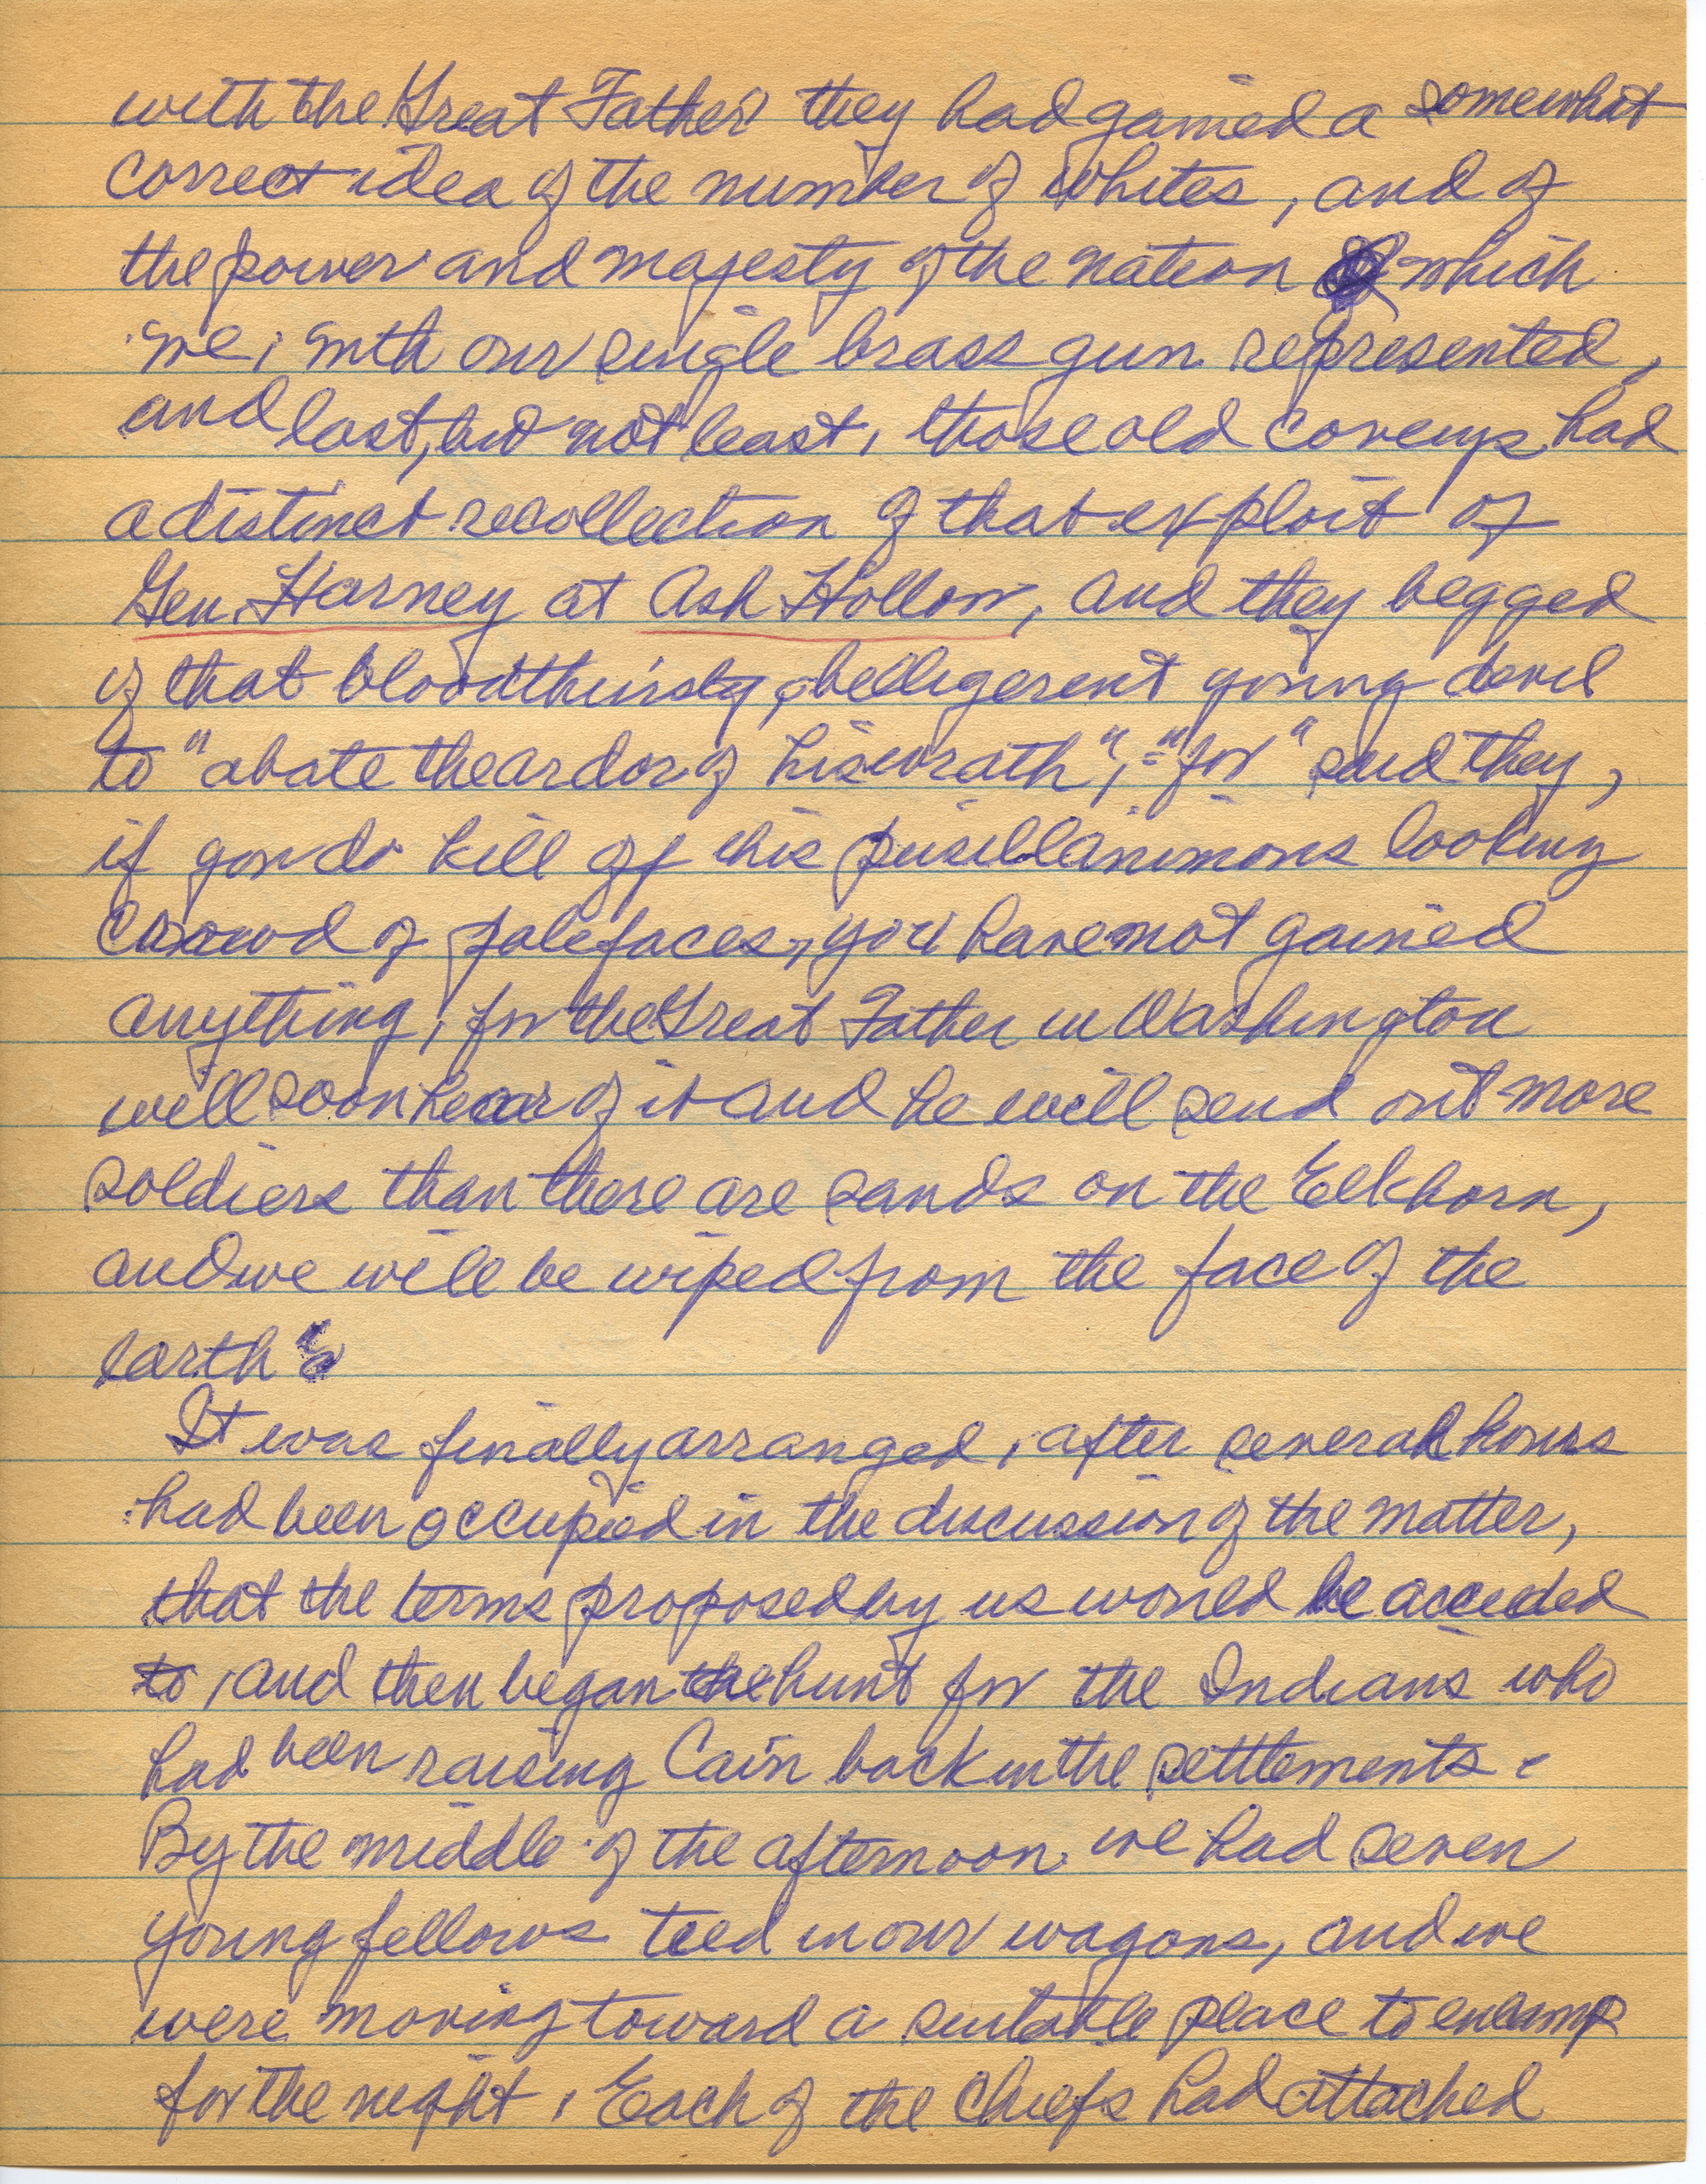 with the Great Father they had gained a somewhat
correct idea of the number of whites, and of
the power and majesty of the nation which
we, with our single brass gun represented,
and last, but not least, those old coveys had
a distinct recollection of that exploit of
Gen. Harney at Ash Hollow, and they begged
of that bloodthirsty, belligerent young devil
to "abate the ardor of his wrath", "for" said they,
if you do kill off this pusillanimous looking
crowd of palefaces, you have not gained
anything, for the Great Father in Washington
will soon hear of it and he will send out more
soldiers than there are sands on the Elkhorn,
and we will be wiped from the face of the
earth
It was finally arranged, after several hours
had been occupied in the discussion of the matter,
that the terms proposed by us would be acceded
to, and then began the hunt for the Indians who
had been raising Cain back in the settlements.
By the middle of the afternoon we had seven
young fellows tied in our wagons, and we
were moving toward a suitable place to encamp
for the night. Each of the chiefs had attached